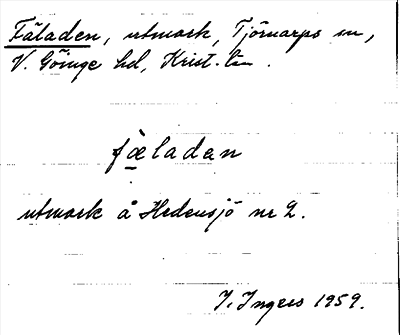 Fäladen, utmark, Tjörnarps sn,
V. Göinge hd, Krist. län.
fæ̀laden
utmark å Hedensjö nr 2.
I. Ingers 1959.